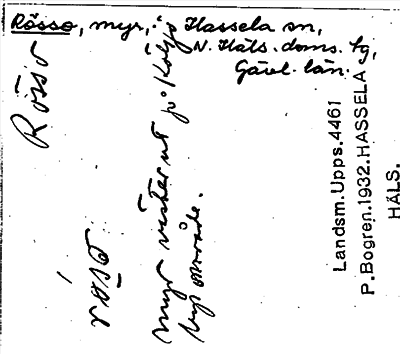 Rösso, myr, i Hassela sn,
N. Häls. doms. tg,
Gävl. län.
Rösso
rǫ́so
myr väster ut på Kölsjö
bys område.
Landsm. Upps. 4461
P. Bogren. 1932. HASSELA
HÄLS.